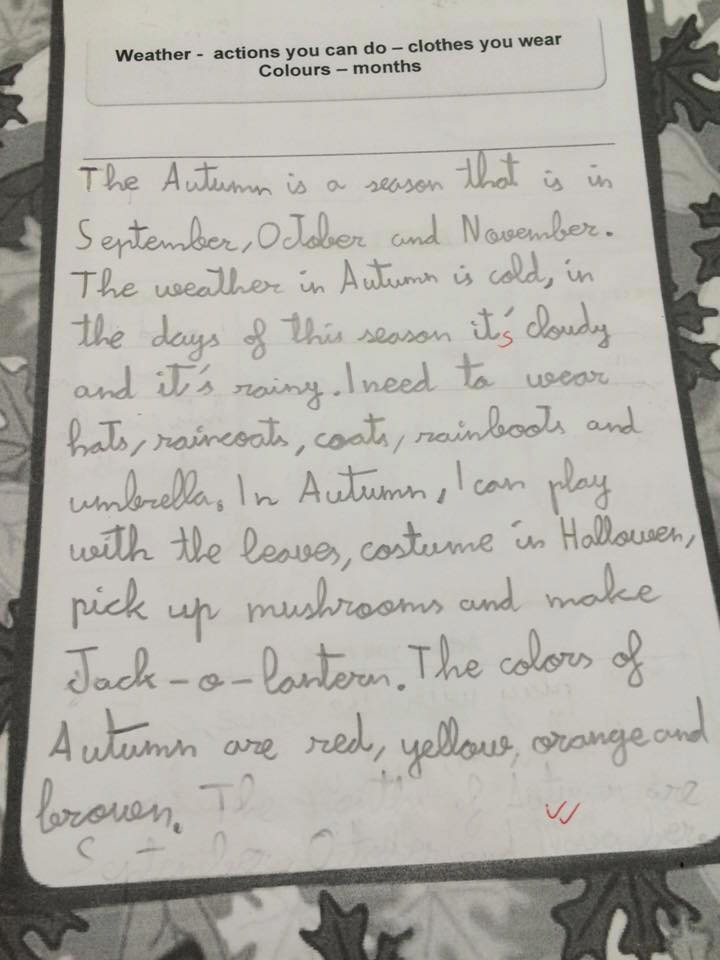 Weather - actions you can do – clothes you wear
Colours – months
The Autumn is a season that is in
September, October and November.
The weather in Autumn is cold, in
the days of this season it's cloudy
and it's rainy. I need to wear
hats, raincoats, coats, rainboots and
umbrella. In Autumn, I can play
with the leaves, costume in Hallowen,
pick up mushrooms and make
Jack-o-lantern. The colors of
Autumn are red, yellow, orange and
brown.